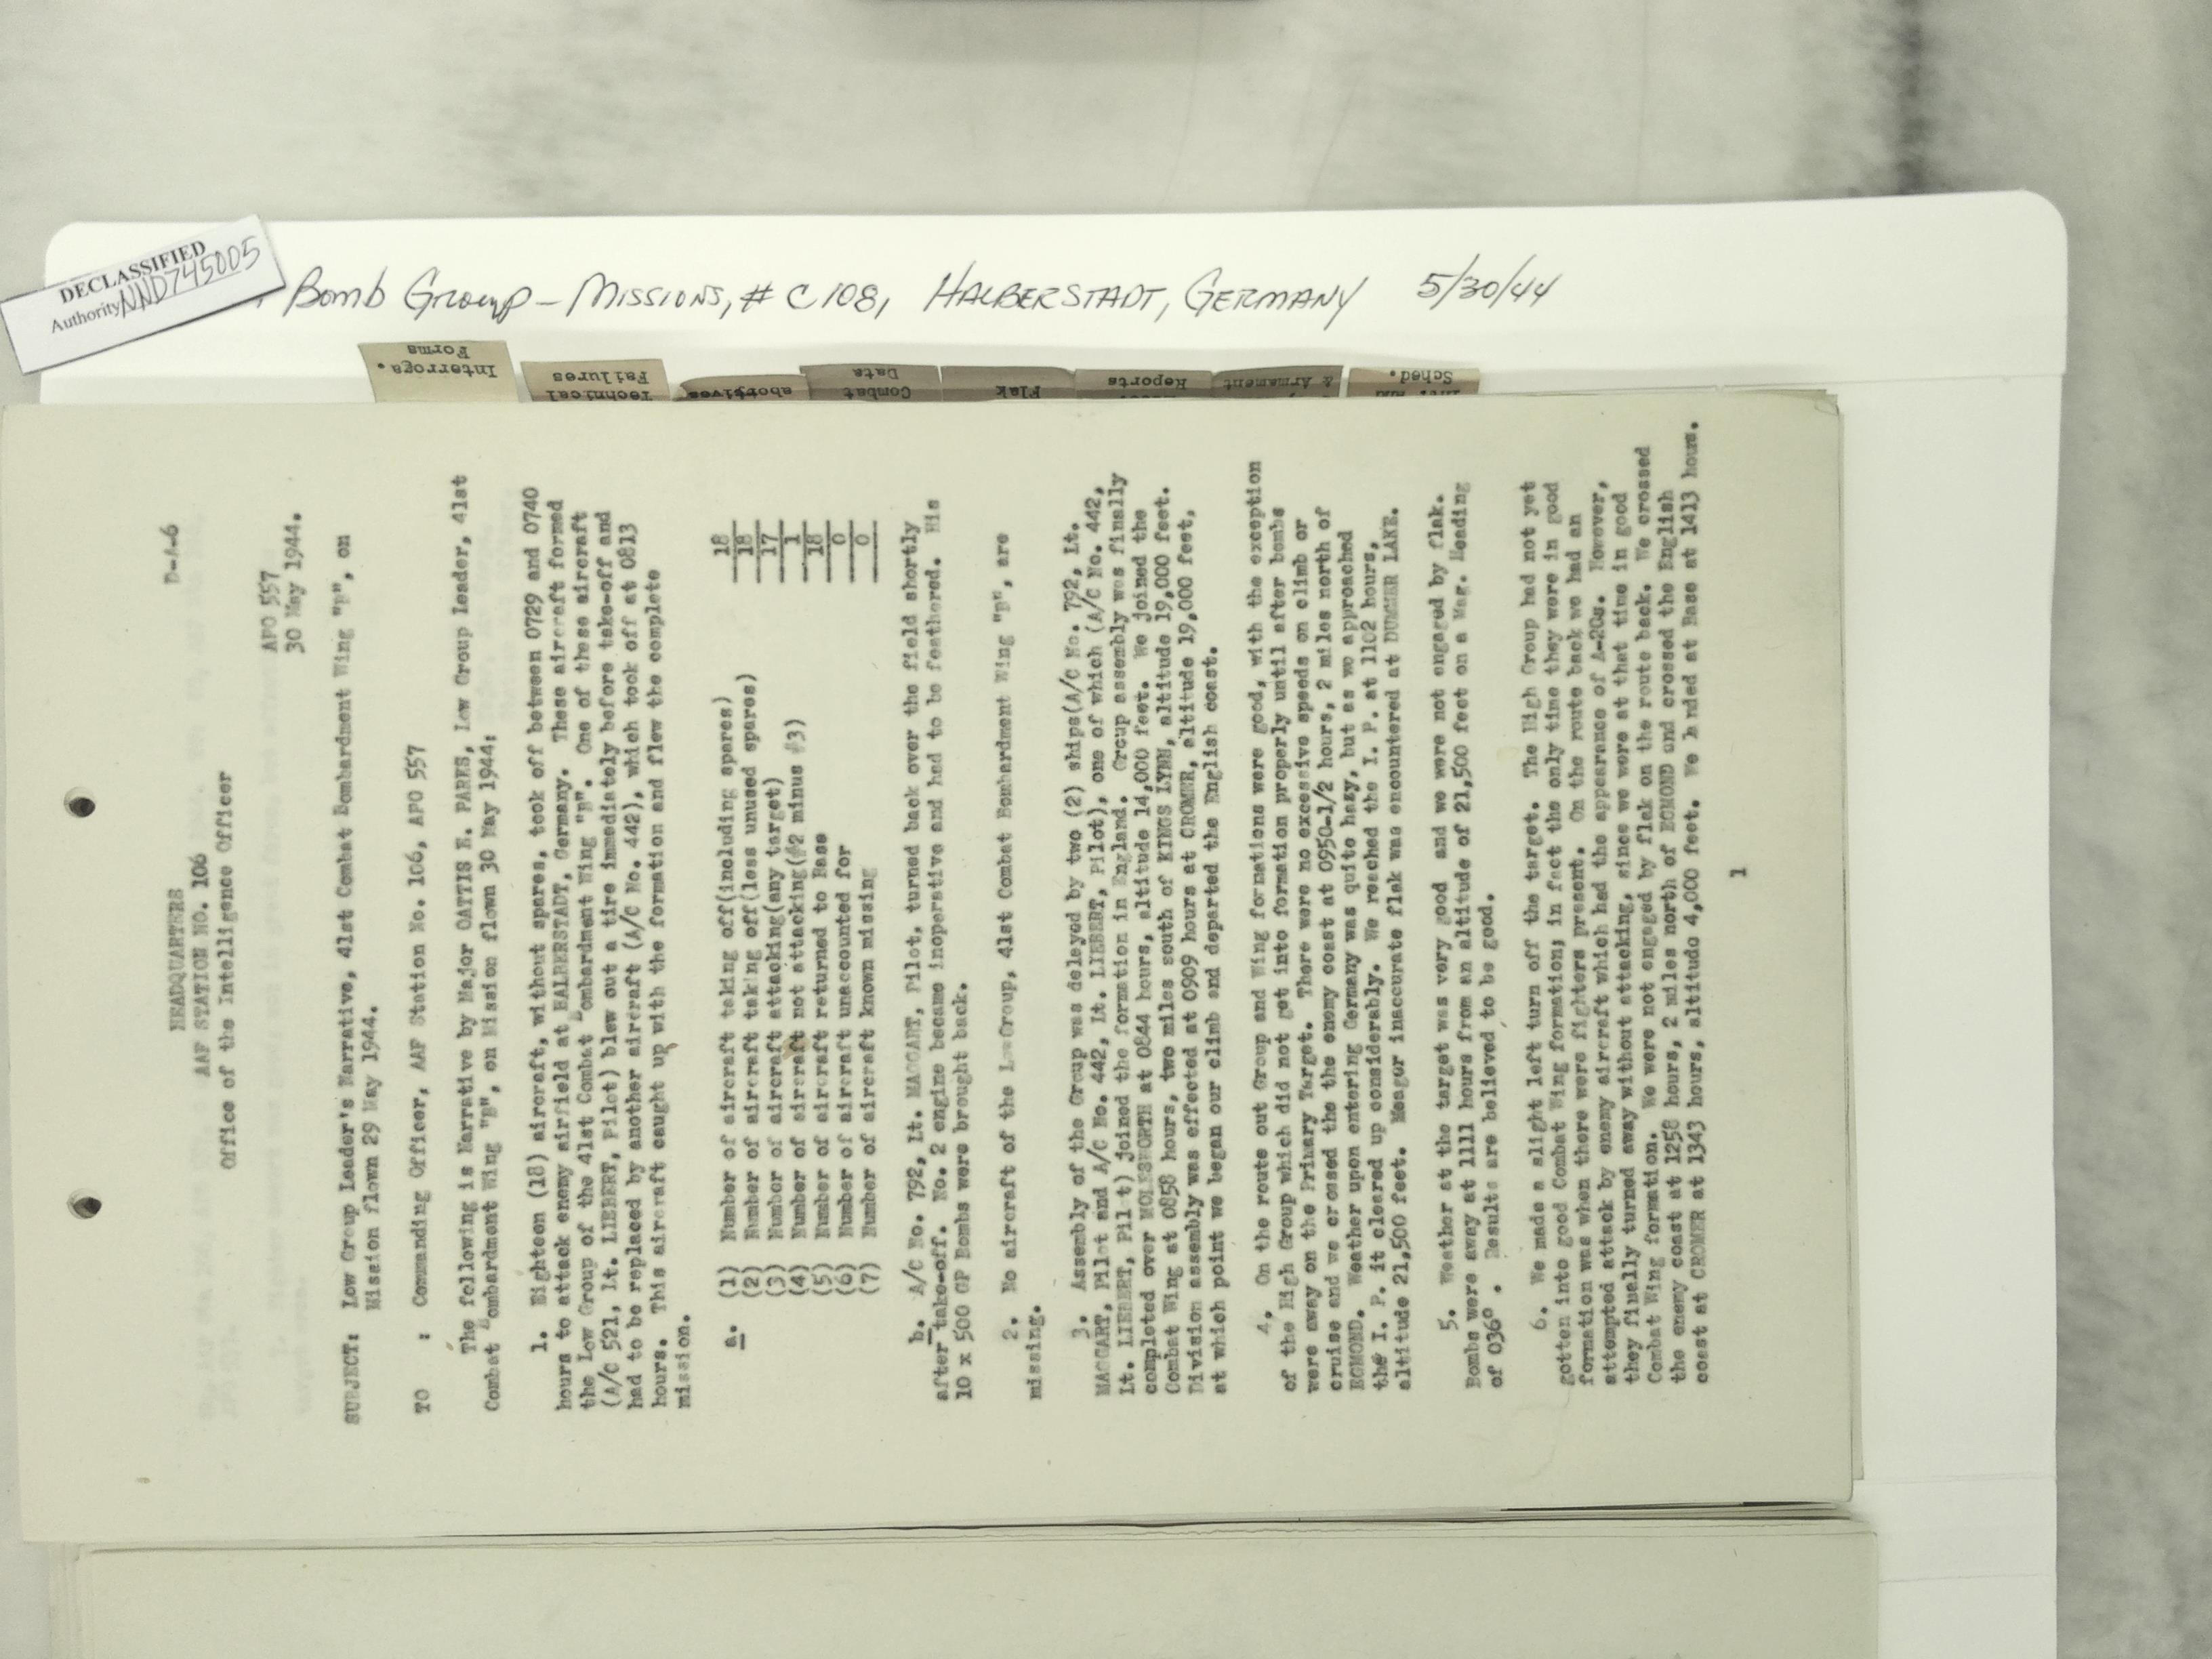 DECLASSIFIED
Authority NND745005
Bomb Group - Missions, # C108, HALBERSTADT, GERMANY 5/30/44
Interroga.
Forms
Technical
Failures
abortives
Combat
Data
Flak
Reports
& Armament
Sched.
D-A-6
HEADQUARTERS
AAF STATION NO. 106
Office of the Intelligence Officer
APO 557
30 May 1944.
SUBJECT: Low Group Leader's Narrative, 41st Combat Bombardment Wing "B", on
Mission flown 29 May 1944.
TO : Commanding Officer, AAF Station No. 106, APO 557
The following is Narrative by Major OATTIS E. PARKS, Low Group Leader, 41st
Combat Bombardment Wing "B", on Mission flown 30 May 1944:
1. Eighteen (18) aircraft, without spares, took off between 0729 and 0740
hours to attack enemy airfield at HALBERSTADT, Germany. These aircraft formed
the Low Group of the 41st Combat Bombardment Wing "B". One of these aircraft
(A/C 521, Lt. LIEBERT, Pilot) blew out a tire immediately before take-off and
had to be replaced by another aircraft (A/C No. 442), which took off at 0813
hours. This aircraft caught up with the formation and flew the complete
mission.
a. (1) Number of aircraft taking off(including spares) 18
(2) Number of aircraft taking off(less unused spares) 18
(3) Number of aircraft attacking(any target) 17
(4) Number of aircraft not attacking(#2 minus #3) 1
(5) Number of aircraft returned to Base 18
(6) Number of aircraft unaccounted for 0
(7) Number of aircraft known missing 0
b. A/C No. 792, Lt. MAGGART, Pilot, turned back over the field shortly
after take-off. No. 2 engine became inoperative and had to be feathered. His
10 x 500 GP Bombs were brought back.
2. No aircraft of the LowGroup, 41st Combat Bombardment Wing "B", are
missing.
3. Assembly of the Group was delayed by two (2) ships(A/C No. 792, Lt.
MAGGART, Pilot and A/C No. 442, Lt. LIEBERT, Pilot), one of which (A/C No. 442,
Lt. LIEBERT, Pil t) joined the formation in England. Group assembly was finally
completed over MOLESWORTH at 0844 hours, altitude 14,000 feet. We joined the
Combat Wing at 0858 hours, two miles south of KINGS LYNN, altitude 19,000 feet.
Division assembly was effected at 0909 hours at CROMER, altitude 19,000 feet,
at which point we began our climb and departed the English coast.
4. On the route out Group and Wing formations were good, with the exception
of the High Group which did not get into formation properly until after bombs
were away on the Primary Target. There were no excessive speeds on climb or
cruise and we crossed the the enemy coast at 0950-1/2 hours, 2 miles north of
EGMOND. Weather upon entering Germany was quite hazy, but as we approached
the I. P. it cleared up considerably. We reached the I. P. at 1102 hours,
altitude 21,500 feet. Meager inaccurate flak was encountered at DUMMER LAKE.
5. Weather at the target was very good and we were not engaged by flak.
Bombs were away at 1111 hours from an altitude of 21,500 feet on a Mag. Heading
of 036° . Results are believed to be good.
6. We made a slight left turn off the target. The High Group had not yet
gotten into good Combat Wing formation; in fact the only time they were in good
formation was when there were fighters present. On the route back we had an
attempted attack by enemy aircraft which had the appearance of A-20s. However,
they finally turned away without attacking, since we were at that time in good
Combat Wing formation. We were not engaged by flak on the route back. We crossed
the enemy coast at 1258 hours, 2 miles north of EGMOND and crossed the English
coast at CROMER at 1343 hours, altitude 4,000 feet. We la nded at Base at 1413 hours.
1